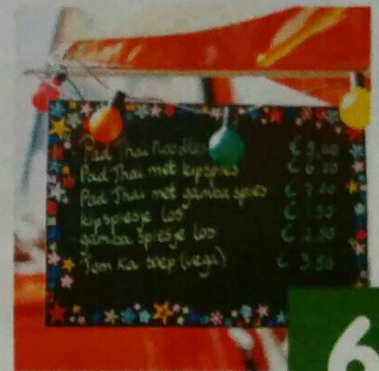 Pad Thai Noodles € 5.00
Pad Thai met kipspies € 6.00
Pad Thai met gamba spies € 7.00
kipspiesje los € 1.50
gamba spiesje los € 2.50
Tom Ka soep (vega) € 3.50
6